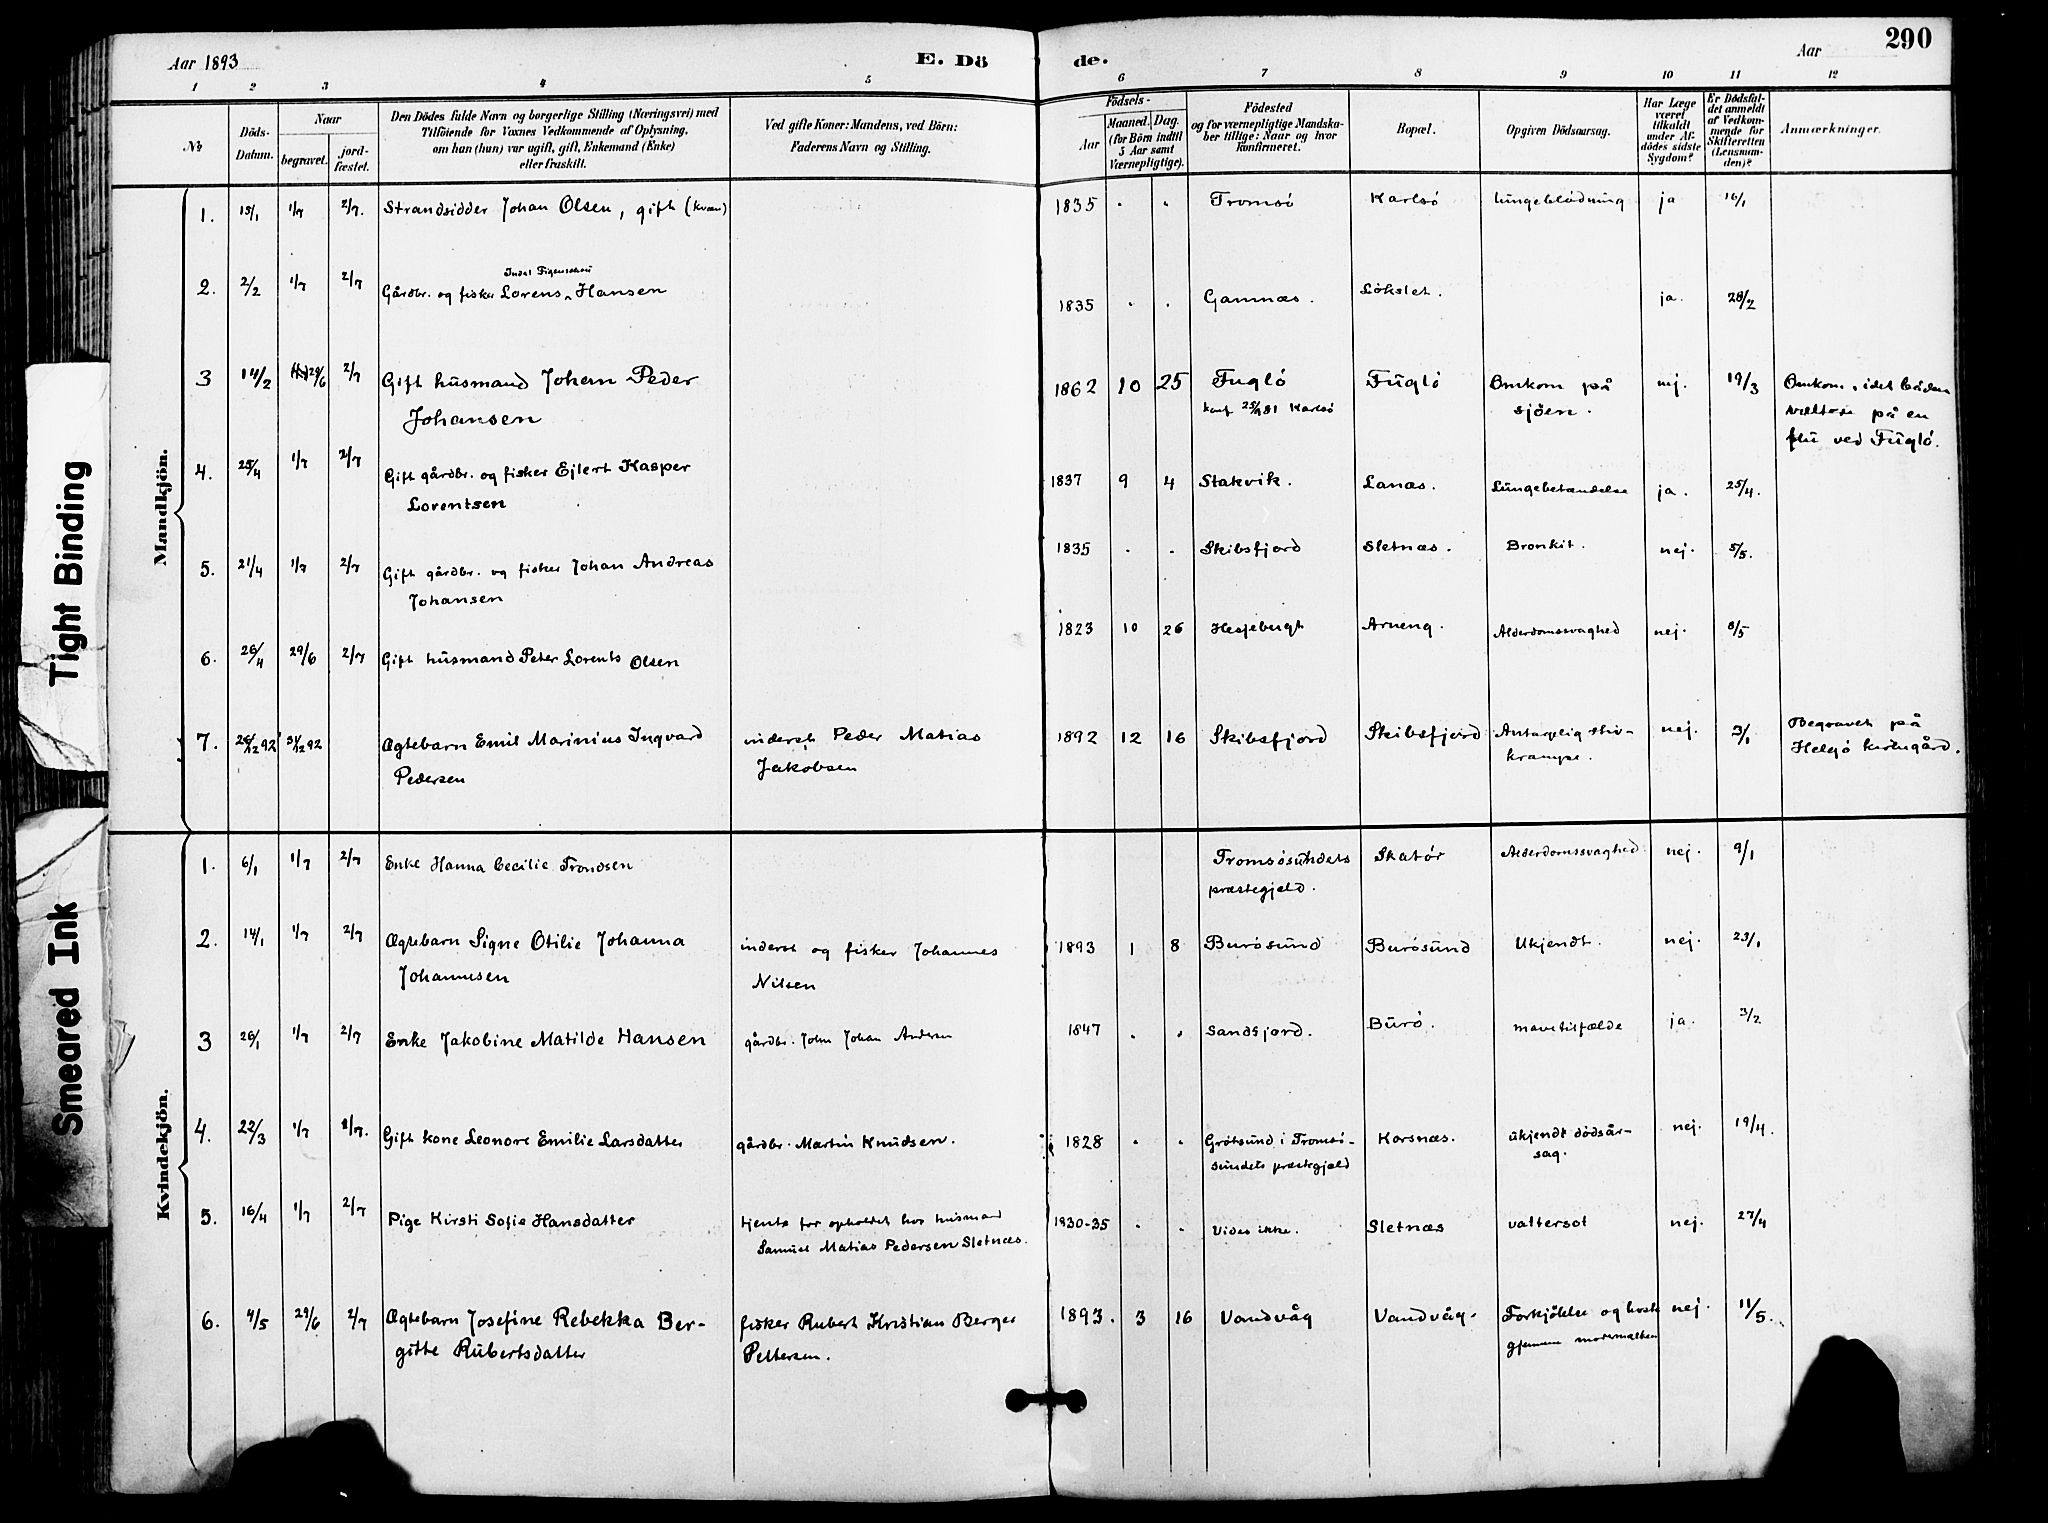 Aar 1893 E. Dö de. Aar 290
1 2 3 4 5 6 7 8 9 10 11 12
No
Döds-Datum.
Naar
begravet.
jord-fæstet.
Den Dödes fulde Navn og borgerlige Stilling (Næringsvei) med
Tilföiende for Voxnes Vedkommende af Oplysning,
om han (hun) var ugift, gift, Enkemand (Enke)
eller fraskilt.
Ved gifte Koner: Mandens, ved Börn:
Faderens Navn og Stilling.
Födsels-
Aar
Maaned. Dag.
(for Börn indtil
5 Aar samt
Værnepligtige).
Födested
og for værnepligtige Mandska-
ber tillige: Naar og hvor
konfirmeret.
Bopæl.
Opgiven Dödsaarsag.
Har Læge
været
tilkaldt
under Af-
dödes sidste
Sygdom?
Er Dödsfal-
det anmeldt
af Vedkom-
mende for
Skifteretten
(Lensman-
den)?
Anmærkninger.
Mandkjön.
1. 15/1 1/7 2/7. Strandsidder Johan Olsen, gift (kvæn) 1835 . . Tromsö Karlsö Lungeblödning ja 16/1
Indal Figenschou
2. 2/2 1/7 2/7 Gårdbr. og fisker Lorens ^ Hansen 1835 . . Gamnæs. Lökslet. ja. 28/2
3 14/2 29/6 2/7 Gift husmand Johan Peder 1862 10 25 Fuglö Fuglö Omkom på nej. 19/3 Omkom, idet båden
Johansen konf 81 Karlsö sjöen. væltede på en
flu ved Fuglö.
4. 25/4 1/7 2/7 Gift gårdbr. og fisker Ejlert Kasper 1837 9 4 Stakvik. Lanæs. Lungebetændelse ja. 25/4.
Lorentsen
5. 21/4 1/7 2/7 Gift gårdbr. og fisker Johan Andreas 1835 . . Skibsfjord Sletnæs. Bronkit. nej. 5/5.
Johansen
6. 26/4 29/6 2/7 Gift husmand Peter Lorents Olsen 1823 10 26 Hessjebugt Arneng. Alderdomssvaghed nej. 8/5
7. 26/12 92 31/12 92 Ægtebarn Emil Marinius Ingvard inderst Peder Matias 1892 12 16 Skibsfjord Skibsfjord Antagelig stiv- nej. 3/1 Begravet på
Pedersen Jakobsen krampe. Helgö kirkegård.
Kvindekjön.
1. 6/1 1/7 2/7 Enke Hanna Cecilie Trondsen Tromsösundets Skatör Alderdomssvaghed nej. 9/1
præstegjeld.
2. 14/1 1/7 2/7 Ægtebarn Signe Otilie Johanna inderst og fisker Johannes 1893 1 8 Burösund Burösund Ukjendt. nej. 23/1
Johannesen Nilsen
3 26/1 1/7 2/7 Enke Jakobine Matilde Hansen gårdbr. John Johan Andersen 1847 . . Sandfjord. Burö. mavetilfælde ja. 3/2
4. 22/3 1/7 2/7. Gift kone Leonore Emilie Larsdatter gårdbr. Martin Knudsen. 1828 . . Grötsund i Tromsö- Korsnæs. ukjendt dödsår- nej. 19/4.
sundets præstegjæld sag.
5. 16/4 1/7 2/7 Pige Kirsti Sofie Hansdatter tjente for opholdet hos husmand 1830-35 . . Vides ikke. Sletnæs vattersot nej. 27/4
Samuel Matias Pedersen Sletnæs.
6. 4/5 29/6 2/7 Ægtebarn Josefine Rebekka Ber- fisker Rubert Kristian Berger 1893. 3 16 Vandvåg Vandvåg. Forkjölelse og nej. 11/5.
gitte Rubertsdatter Pettersen. gjennem
Tight Binding
Smeared Ink